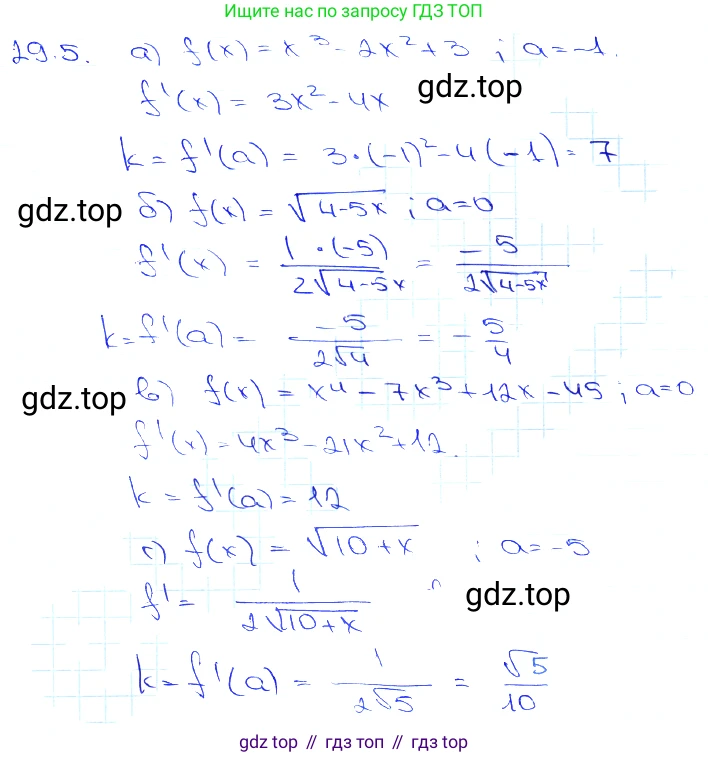 Ищите нас по запросу ГДЗ ТОП
29.5. а) f(x) = x³ - 2x² + 3 ; a = -1.
f'(x) = 3x² - 4x
gdz.top
k = f'(a) = 3·(-1)² - 4(-1) = 7
gdz.top
б) f(x) = √(4-5x) ; a=0
f'(x) = 1·(-5)/2√(4-5x) = -5/2√(4-5x)
k = f'(a) = -5/2√4 = -5/4
gdz.top
в) f(x) = x⁴ - 7x³ + 12x - 45 ; a=0
f'(x) = 4x³ - 21x² + 12.
k = f'(a) = 12
г) f(x) = √(10+x) ; a = -5
f' = 1/2√(10+x)
gdz.top
k = f'(a) = 1/2√5 = √5/10
gdz top // гдз топ // gdz.top